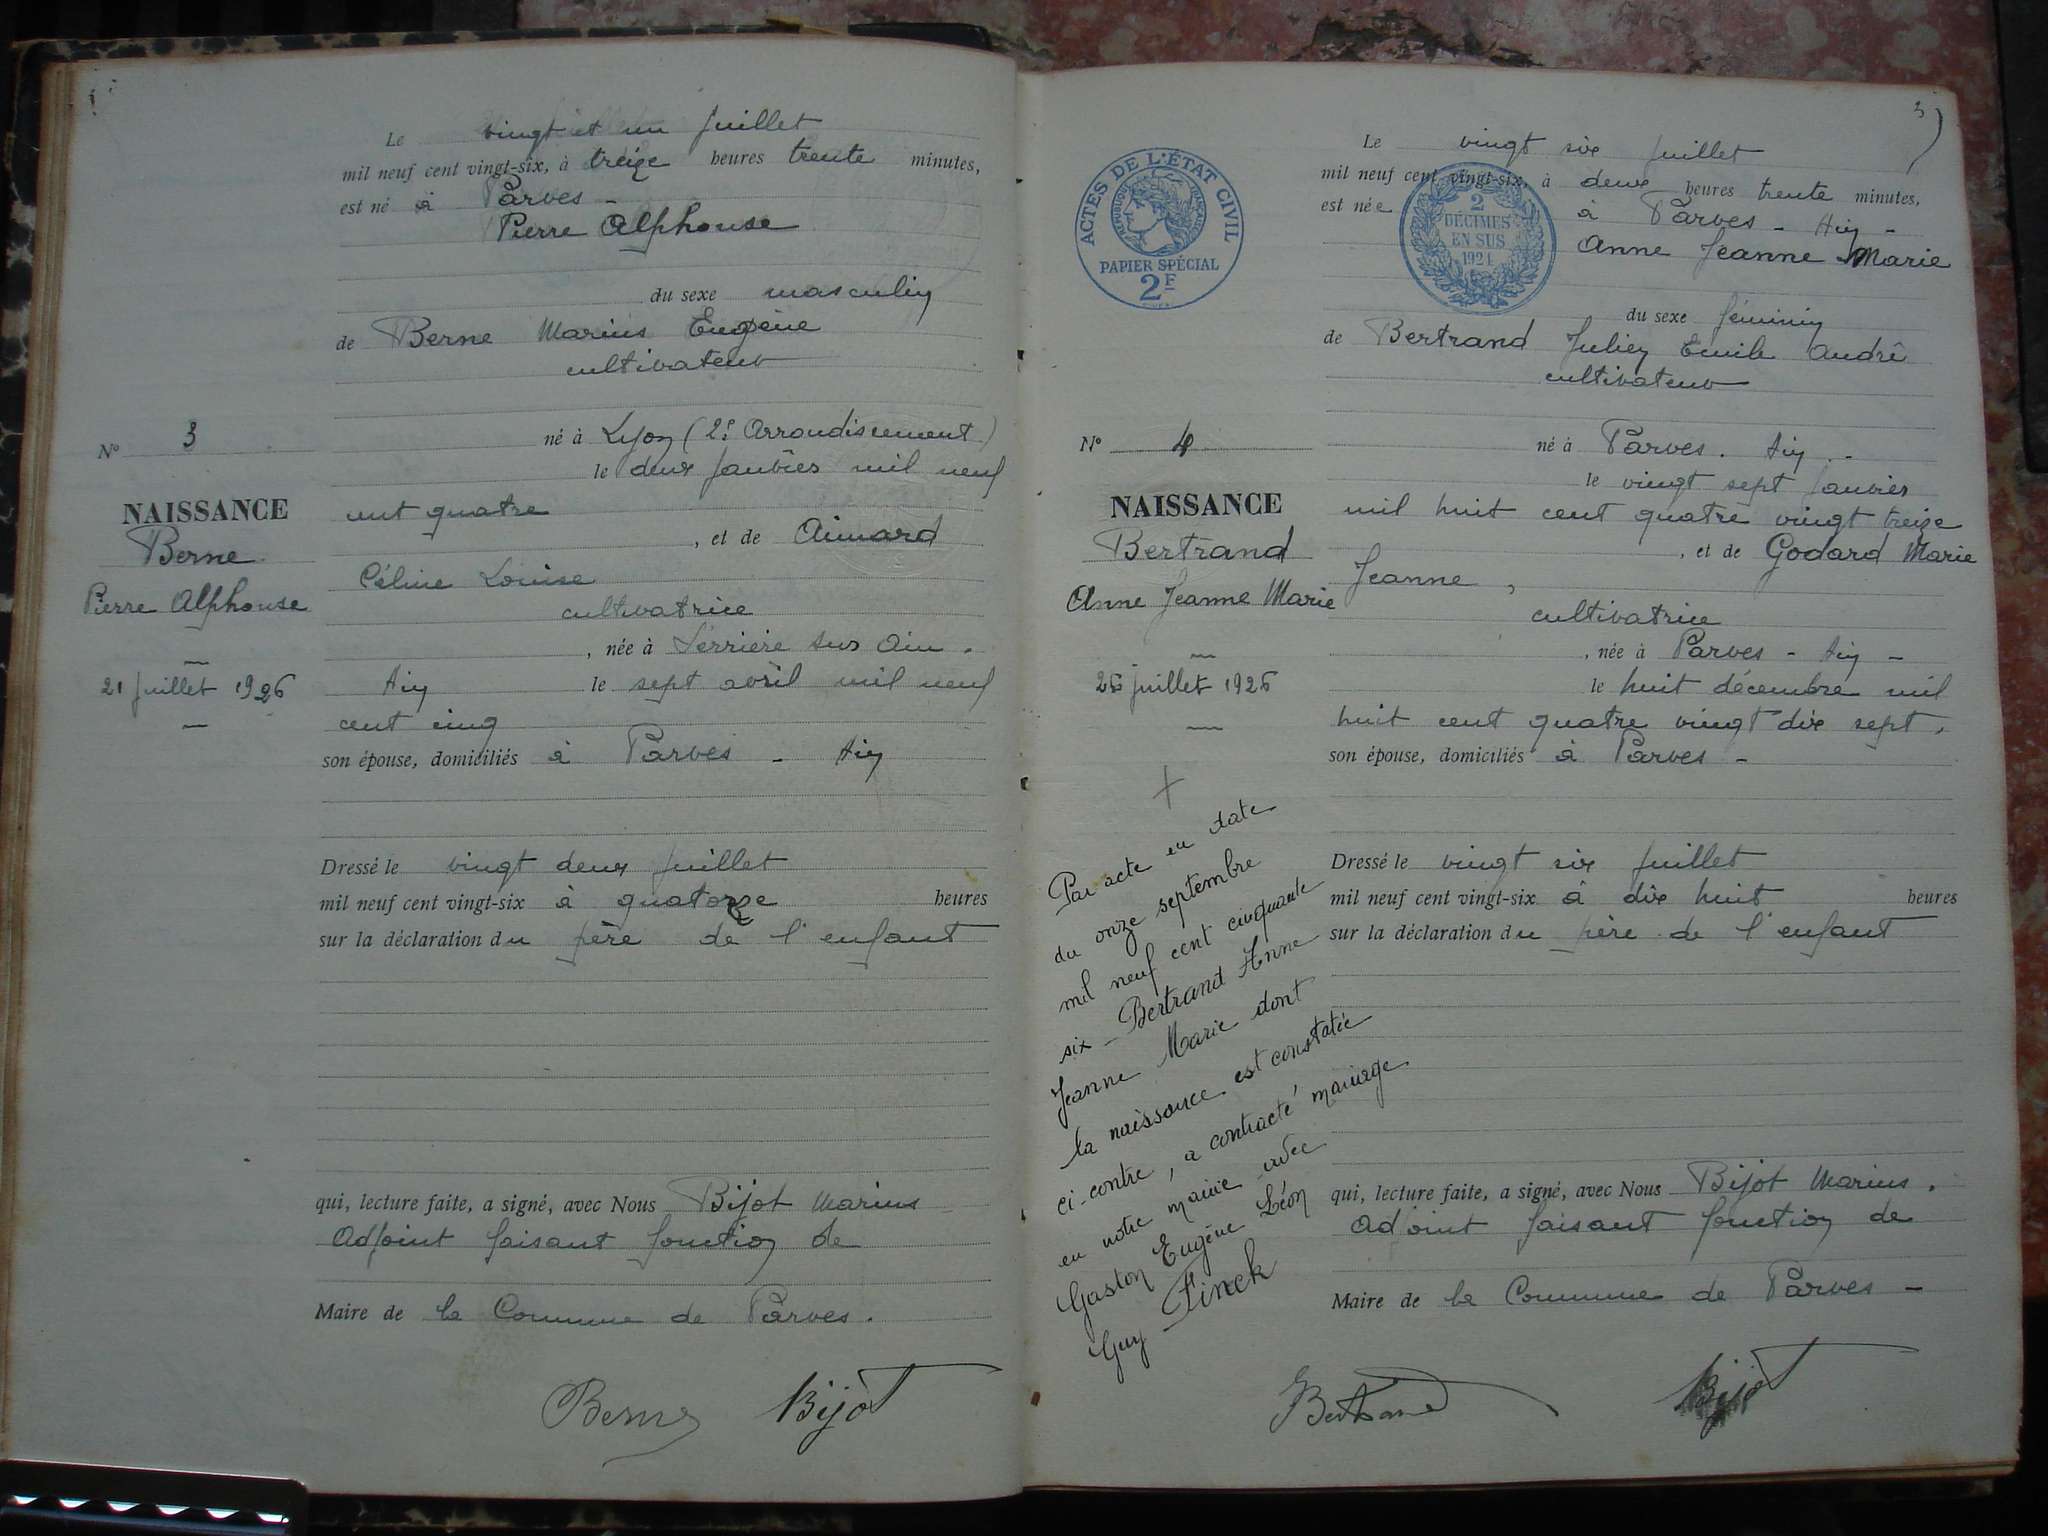 Le vingt et un juillet
mil neuf cent vingt-six, à treize heures trente minutes,
est né à Parves -
Pierre Alphonse
du sexe masculin
de Berne Marius Eugène
cultivateur
N° 3
né à Lyon (2e Arrondissement)
le deux janvier mil neuf
NAISSANCE
cent quatre
Berne
, et de Aimard
Pierre Alphonse
Céline Louise
cultivatrice
, née à Serrière sur Ain.
21 juillet 1926
Ain le sept avril mil neuf
cent cinq
son épouse, domiciliés à Parves - Ain
Dressé le vingt deux juillet
mil neuf cent vingt-six à quatorze heures
sur la déclaration du père de l'enfant
qui, lecture faite, a signé, avec Nous Bijot Marius
Adjoint faisant fonction de
Maire de la Commune de Parves.
Berne Bijot
3
ACTES DE L'ÉTAT CIVIL
RÉPUBLIQUE FRANÇAISE
PAPIER SPÉCIAL
2F
2
DÉCIMES
EN SUS
1921
Le vingt six juillet
mil neuf cent vingt-six, à deux heures trente minutes,
est née à Parves - Ain -
Anne Jeanne Marie
du sexe féminin
de Bertrand Julien Emile André
cultivateur
N° 4
né à Parves. Ain -
le vingt sept janvier
NAISSANCE
mil huit cent quatre vingt treize
Bertrand
, et de Godard Marie
Anne Jeanne Marie
Jeanne,
cultivatrice
, née à Parves - Ain -
26 juillet 1926
le huit décembre mil
huit cent quatre vingt dix sept,
son épouse, domiciliés à Parves -
Dressé le vingt six juillet
mil neuf cent vingt-six à dix huit heures
sur la déclaration du père de l'enfant
Par acte en date
du onze septembre
mil neuf cent cinquante
six - Bertrand Anne
Jeanne Marie dont
la naissance est constatée
ci-contre, a contracté mariage
en notre mairie avec
Gaston Eugène Léon
Guy Finck
qui, lecture faite, a signé, avec Nous Bijot Marius.
Adjoint faisant fonction de
Maire de la Commune de Parves -
Bertrand Bijot